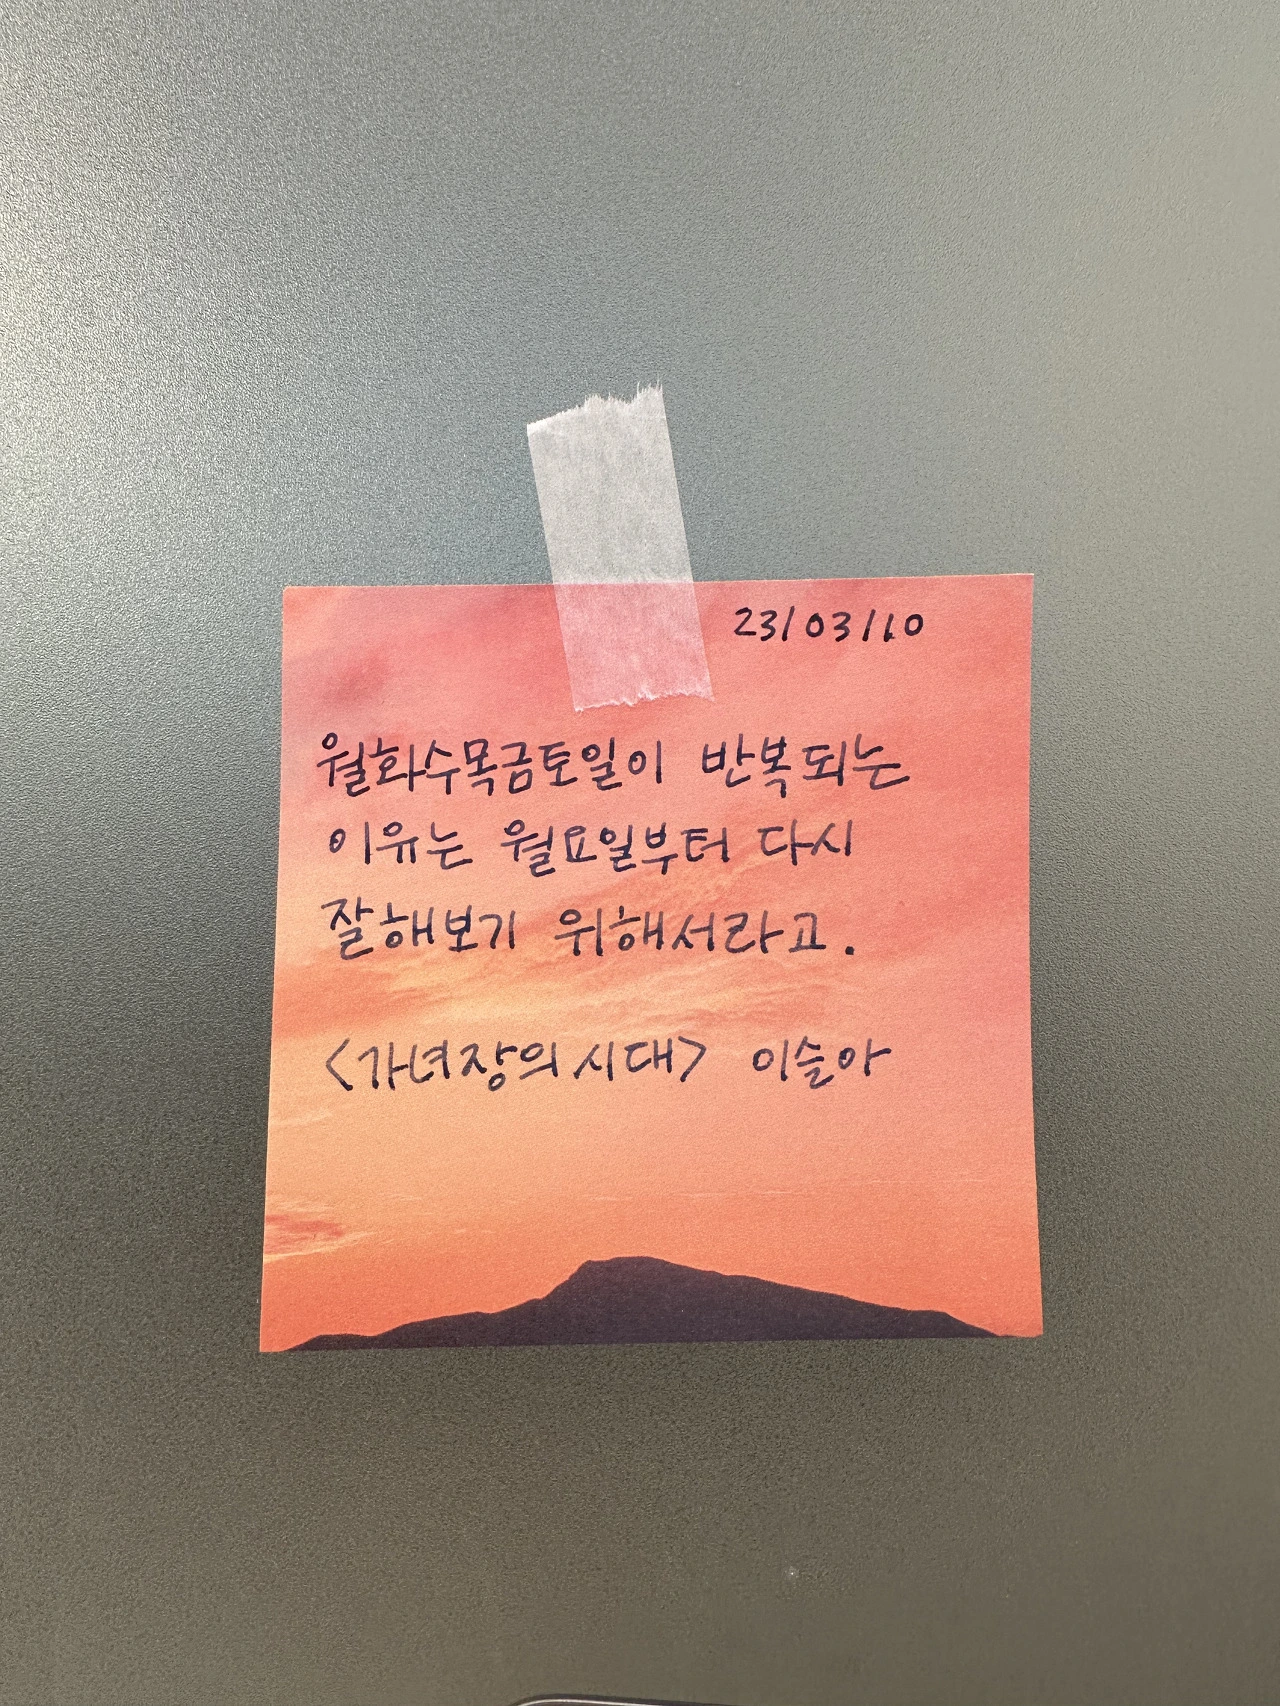 23/03/10
월화수목금토일이 반복되는
이유는 월요일부터 다시
잘해보기 위해서라고.
<가녀장의 시대> 이슬아